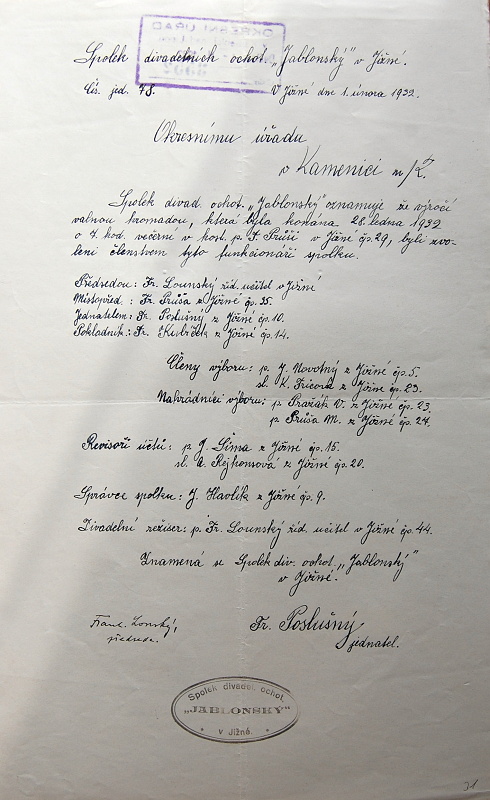 OKRESNÍ ÚŘAD
Spolek divadelních ochot. „Jablonský" v Jižné.
Čís. jed. 78. V Jižné dne 1. února 1932.
Okresnímu úřadu
v Kamenici n/L.
Spolek divad. ochot. „Jablonský" oznamuje že výroční
valnou hromadou, která byla konána 28. ledna 1932
o 7. hod. večerní v host. p. F. Průši v Jižné čp. 29, byli zvo-
leni členstvem tyto funkcionáři spolku.
Předsedou: Fr. Lounský říd. učitel v Jižné
Místopřed.: Fr. Průša z Jižné čp. 35.
Jednatelem: Fr. Poslušný z Jižné čp. 10.
Pokladník: Fr. Kubíček z Jižné čp. 14.
Členy výboru: p. J. Novotný z Jižné čp. 5.
sl. K. Fricová z Jižné čp. 23.
Náhradníci výboru: p. Pražák V. z Jižné čp. 23.
p. Průša M. z Jižné čp. 24.
Revisoři účtů: p. J. Šíma z Jižné čp. 15.
sl. Rejhonsová z Jižné čp. 20.
Správce spolku: J. Havlík z Jižné čp. 9.
Divadelní režiser: p. Fr. Lounský říd. učitel v Jižné čp. 44.
Znamená se Spolek div. ochot. „Jablonský"
v Jižné.
Frant. Lounský, Fr. Poslušný
předseda. jednatel.
Spolek divadel. ochot.
„JABLONSKÝ"
v Jižné.
31